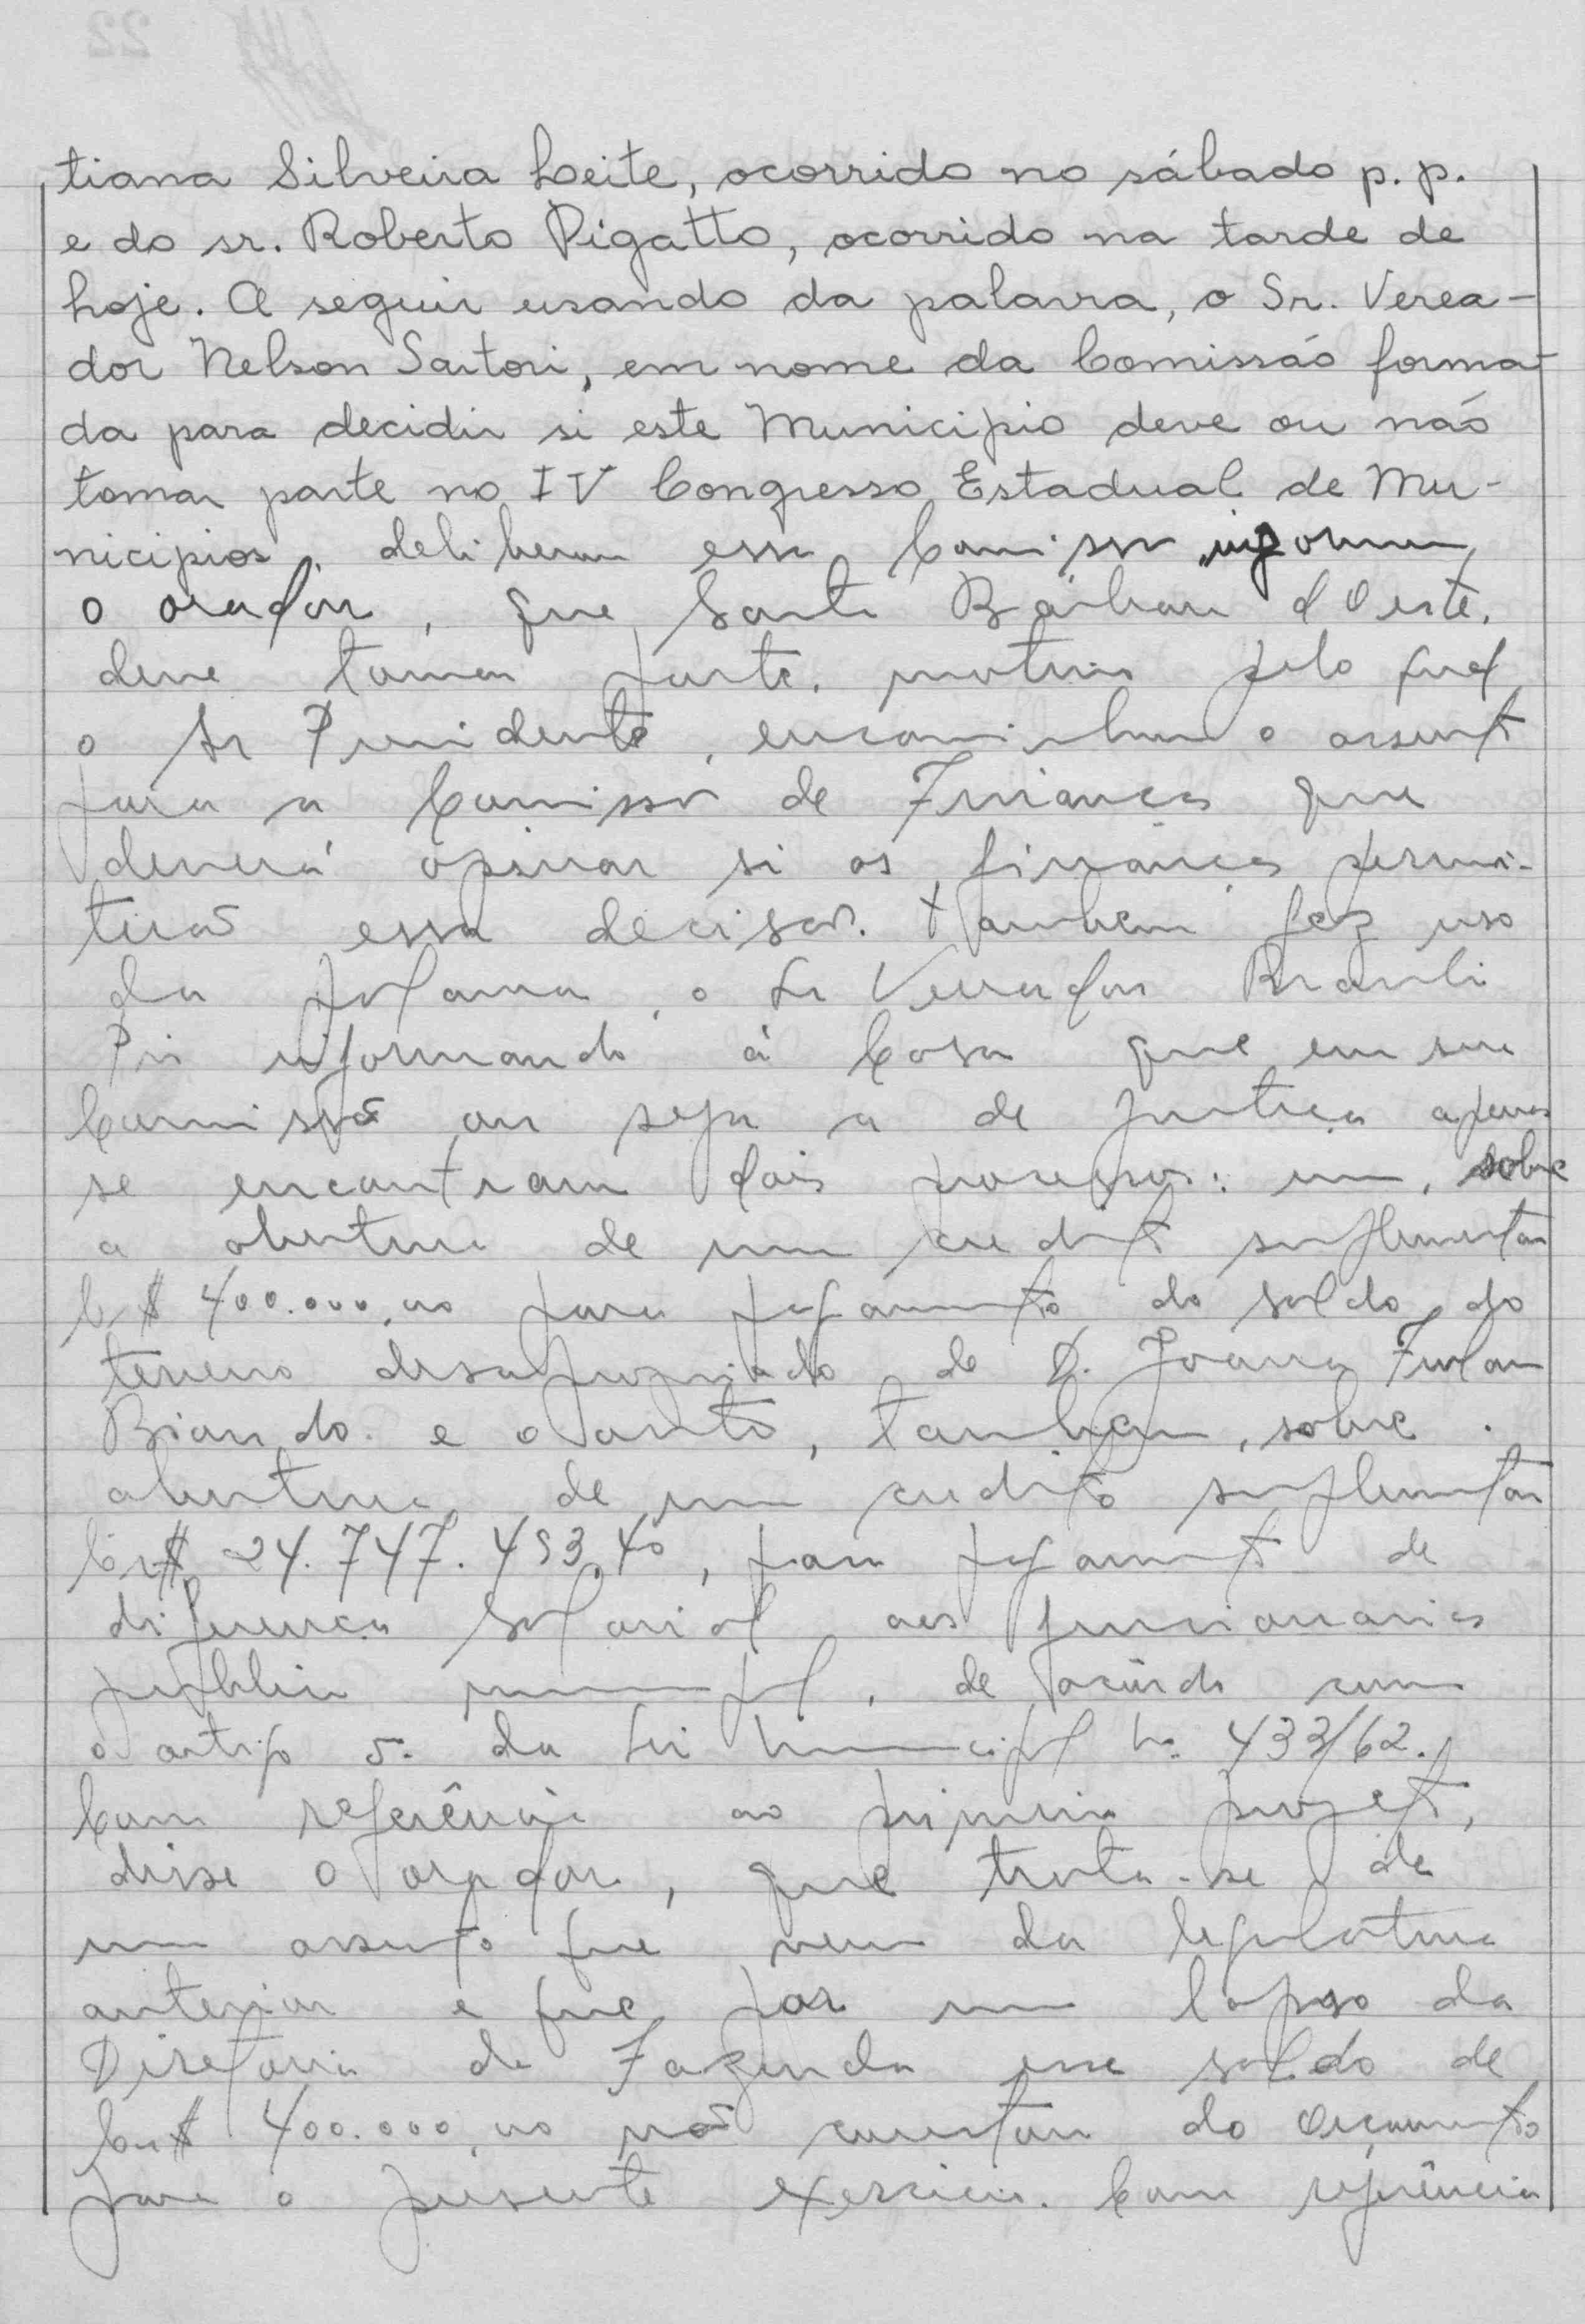 tiana Silveira Leite, ocorrido no sábado p.p.
e do sr. Roberto Pigatto, ocorrido na tarde de
hoje. A seguir usando da palavra, o Sr. Verea-
dor Nelson Sartori, em nome da Comissão forma-
da para decidir si este Municipio deve ou não
tomar parte no IV Congresso Estadual de Mu-
nicipios, deliberou essa Comissão informou
o orador, que Santa Bárbara d'Oeste,
deve tomar parte, motivo pelo qual
o Sr Presidente, encaminhou o assunto
para a Comissão de Finanças que
deverá opinar si as finanças permi-
tirão essa decisão. Também fez uso
da palavra, o Sr Vereador Braulio
Pio informando à Casa que em sua
Comissão ou seja a de Justiça apenas
se encontram dois processos: um, sobre
a abertura de um credito suplementar
Cr$ 400.000,00 para pagamento do saldo do
terreno desapropriado de D. Joana Furlan
Biando e o outro, tambem, sobre
abertura de um credito suplementar
Cr$ 24.747.493,40, para pagamento de
diferença salarial aos funcionarios
publico municipal, de acôrdo com
o artigo 5º da Lei Municipal nº 433/62.
Com referência ao primeiro projeto,
disse o orador, que trata-se de
um assunto que vem da legislatura
anterior e que por um lapso da
Diretoria de Fazenda esse saldo de
Cr$ 400.000,00 não constou do Orçamento
para o presente exercicio. Com referência